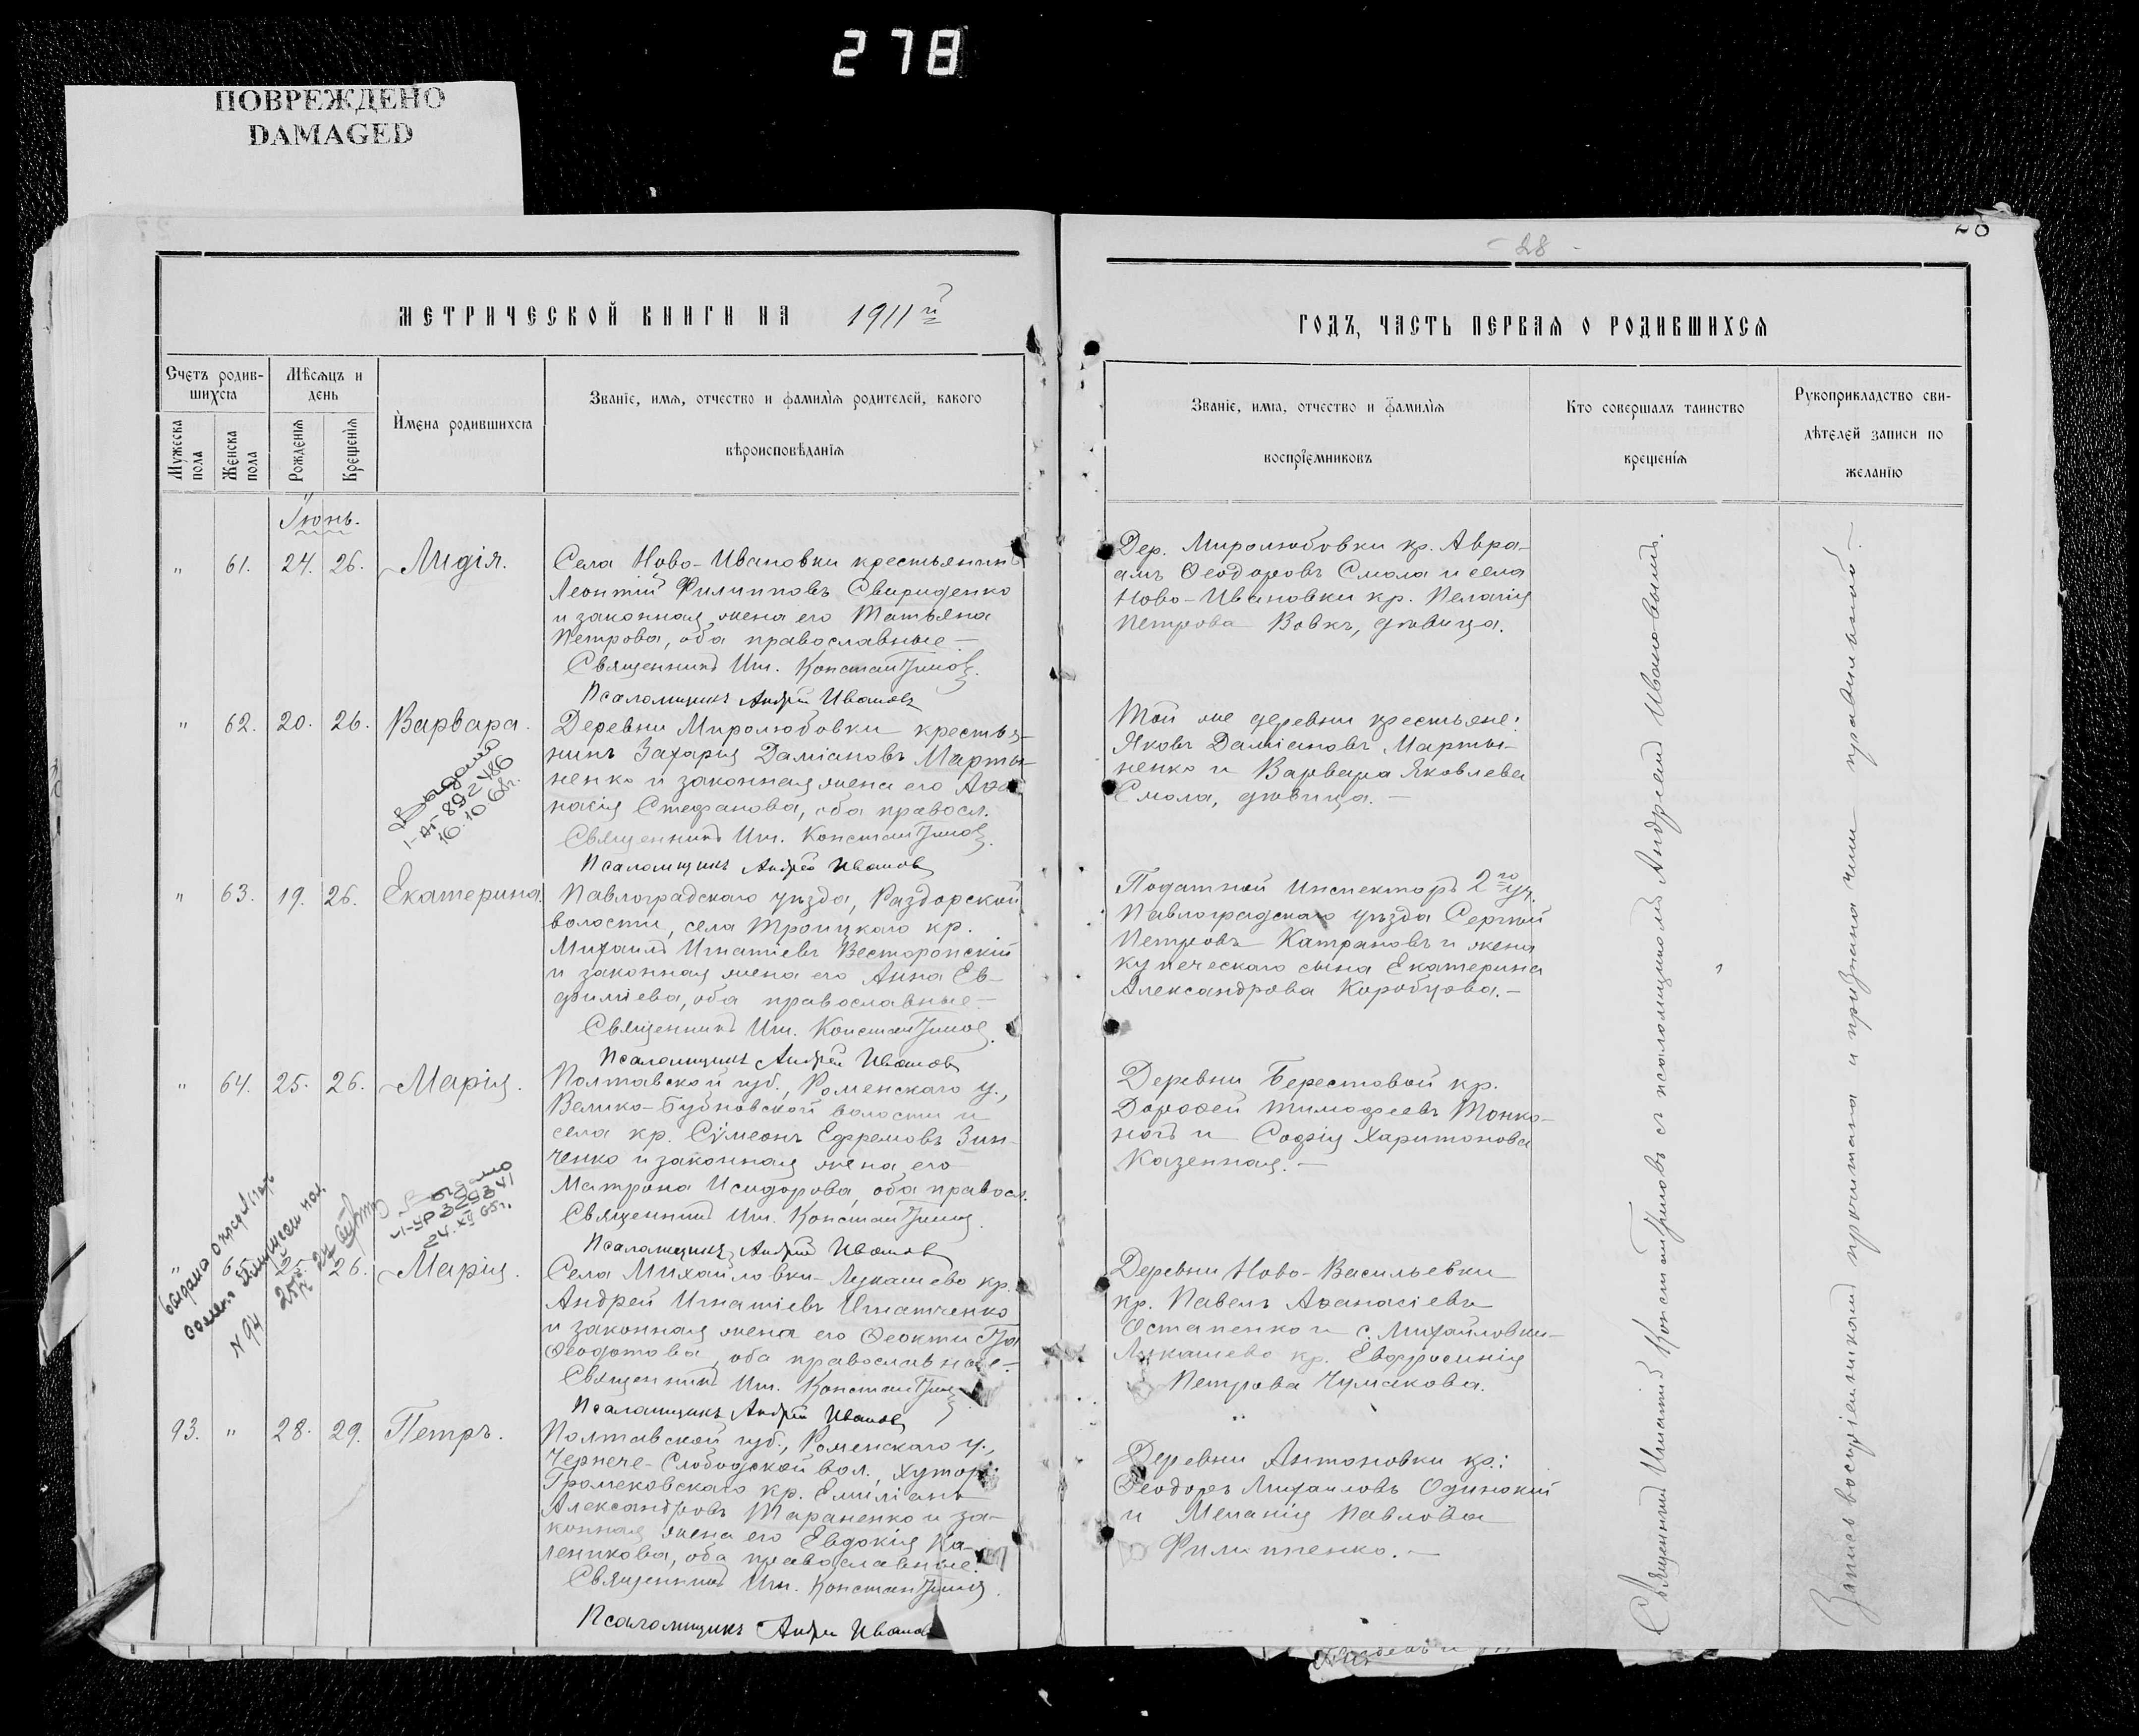 278
ПОВРЕЖДЕНО
DAMAGED
28
- 28 -
МЕТРИЧЕСКОЙ КНИГИ НА 1911й
ГОДЪ, ЧАСТЬ ПЕРВАЯ О РОДИВШИХСЯ
Счетъ родив-
шихся
Мужеска
пола
Женска
пола
Мѣсяцъ и
день
Рожденія
Крещенія
Имена родившихся
Званіе, имя, отчество и фамилія родителей, какого
вѣроисповѣданія
Званіе, имя, отчество и фамилія
воспріемниковъ
Кто совершалъ таинство
крещенія
Рукоприкладство сви-
дѣтелей записи по
желанію
Іюнь.
" 61. 24. 26. Лидія.
Села Ново-Ивановки крестьянинъ
Леонтій Филипповъ Свириденко
и законная жена его Татьяна
Петрова, оба православные —
Священникъ Игн. Константиновъ.
Псаломщикъ Андрей Ивановъ
Дер. Миролюбовки кр. Авра-
амъ Ѳеодоровъ Смола и села
Ново-Ивановки кр. Пелагія
Петрова Вовкъ, дѣвица.
" 62. 20. 26. Варвара.
Выдано
16.10.68г.
Деревни Миролюбовки крестья-
нинъ Захарія Даміановъ Марты-
ненко и законная жена его Аѳа-
насія Стефанова, оба правосл.
Священникъ Игн. Константиновъ.
Псаломщикъ Андрей Ивановъ
Той же деревни крестьяне:
Яковъ Даміановъ Марты-
ненко и Варвара Яковлева
Смола, дѣвица. —
" 63. 19. 26. Екатерина.
Павлоградскаго уѣзда, Раздорской
волости, села Троицкаго кр.
Михаилъ Игнатіевъ Весторопскій
и законная жена его Анна Ев-
фиміева, оба православные —
Священникъ Игн. Константиновъ.
Псаломщикъ Андрей Ивановъ
Податной Инспекторъ 2го уч.
Павлоградскаго уѣзда Сергѣй
Петровъ Катрановъ и жена
купеческаго сына Екатерина
Александрова Коробцова. —
" 64. 25. 26. Марія.
Выдано
24.XII 65г.
Полтавской губ., Роменскаго у.,
Велико-Бубновской волости и
села кр. Сѵмеонъ Ефремовъ Зин-
ченко и законная жена его
Матрона Исидорова, оба правосл.
Священникъ Игн. Константиновъ.
Псаломщикъ Андрей Ивановъ
Деревни Берестовой кр.
Дороѳей Тимофеевъ Тонко-
ногъ и Софія Харитонова
Казенная. —
" 65. 25. 26. Марія.
Выдано
N 94
Села Михайловки-Лукашево кр.
Андрей Игнатіевъ Игнатченко
и законная жена его Ѳеоктиста
Ѳеодотова, оба православные. —
Священникъ Игн. Константиновъ
Псаломщикъ Андрей Ивановъ
Деревни Ново-Васильевки
кр. Павелъ Аѳанасіевъ
Остапенко и с. Михайловки-
Лукашево кр. Евфросинія
Петрова Чумакова.
93. " 28. 29. Петръ.
Полтавской губ., Роменскаго у.,
Чернече-Слободской вол., хутора
Громековскаго кр. Емиліанъ
Александровъ Тараненко и за-
конная жена его Евдокія Ка-
леникова, оба православные.
Священникъ Игн. Константиновъ.
Псаломщикъ Андрей Ивановъ
Деревни Антоновки кр.:
Ѳеодоръ Михаиловъ Одинокій
и Меланія Павлова
Филипенко. —
Священникъ Игнатій Константиновъ съ псаломщикомъ Андреемъ Ивановымъ.
Запись воспріемниками прочитана и признана ими правильной. —